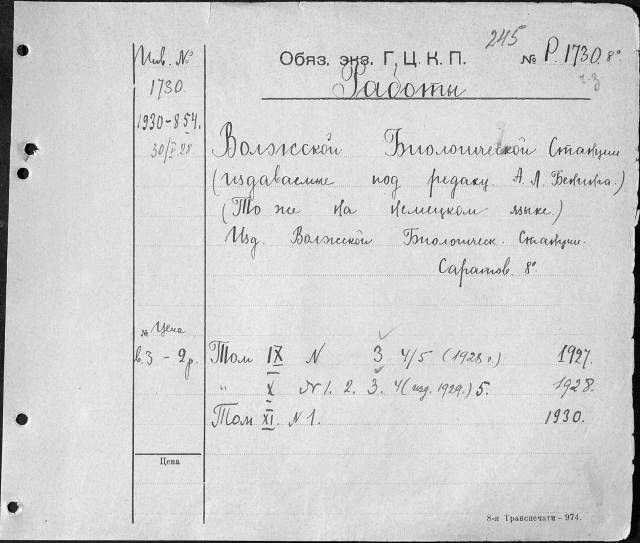 245
Инв. №
1730.
1930-854.
30/V 28.
Обяз. экз. Г. Ц. К. П. № Р. 1730. 8°
Работы
Волжской Биологической Станции
(издаваемые под редакц. А. Л. Бенинга.)
(То же на немецком языке.)
Изд. Волжской Биологическ. Станции.
Саратов. 8°
№ Цена
в. 3 - 2 р.
Том IX N 3 4/5 (1928 г.) 1927.
" X N 1. 2. 3. 4 (изд. 1929.) 5. 1928.
Том XI. N 1. 1930.
Цена
8-я Транспечати - 974.